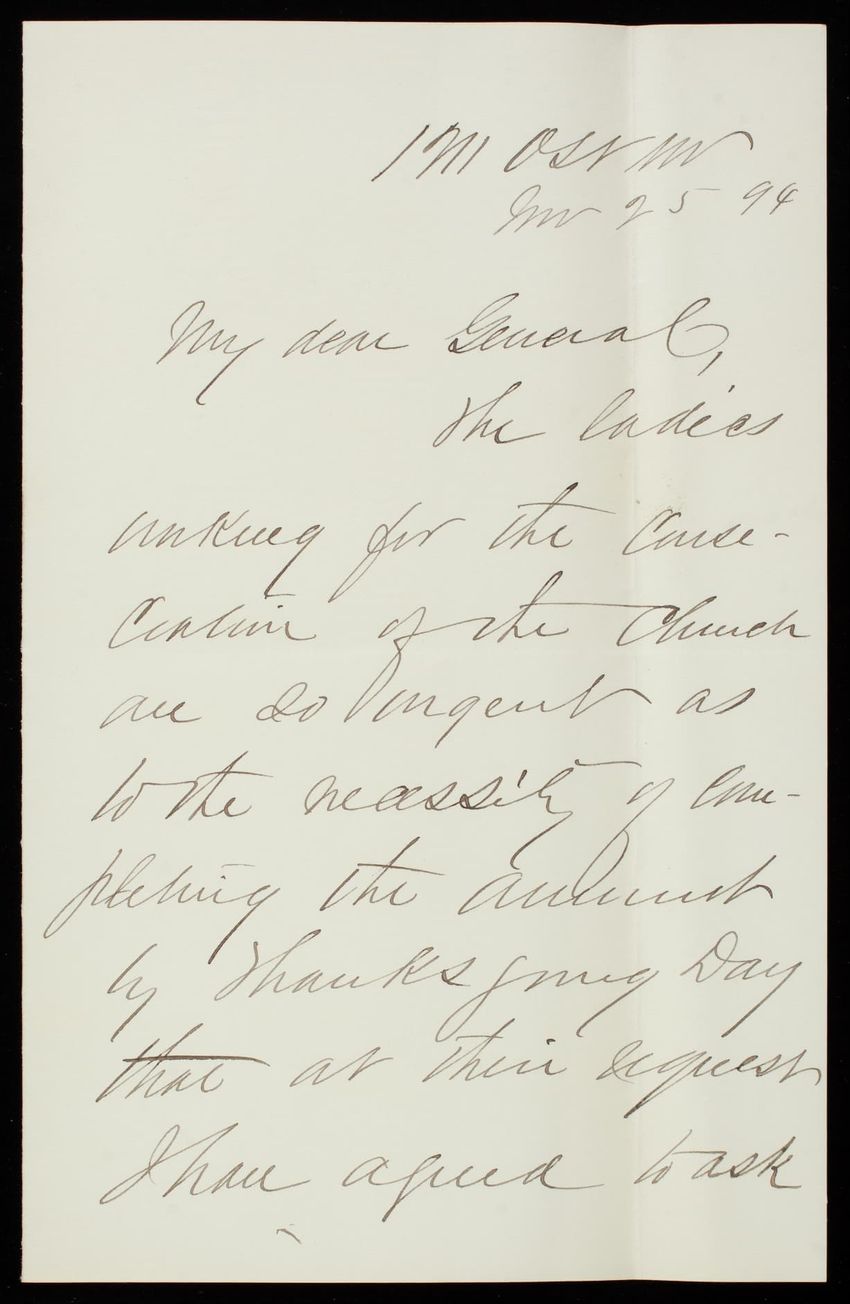 O St NW
Nov 25 94
My dear General,
The ladies
working for the Conse-
cration of the Church
are so urgent as
to the necessity of com-
pleting the amount
by Thanksgiving Day
that at their request
I have agreed to ask